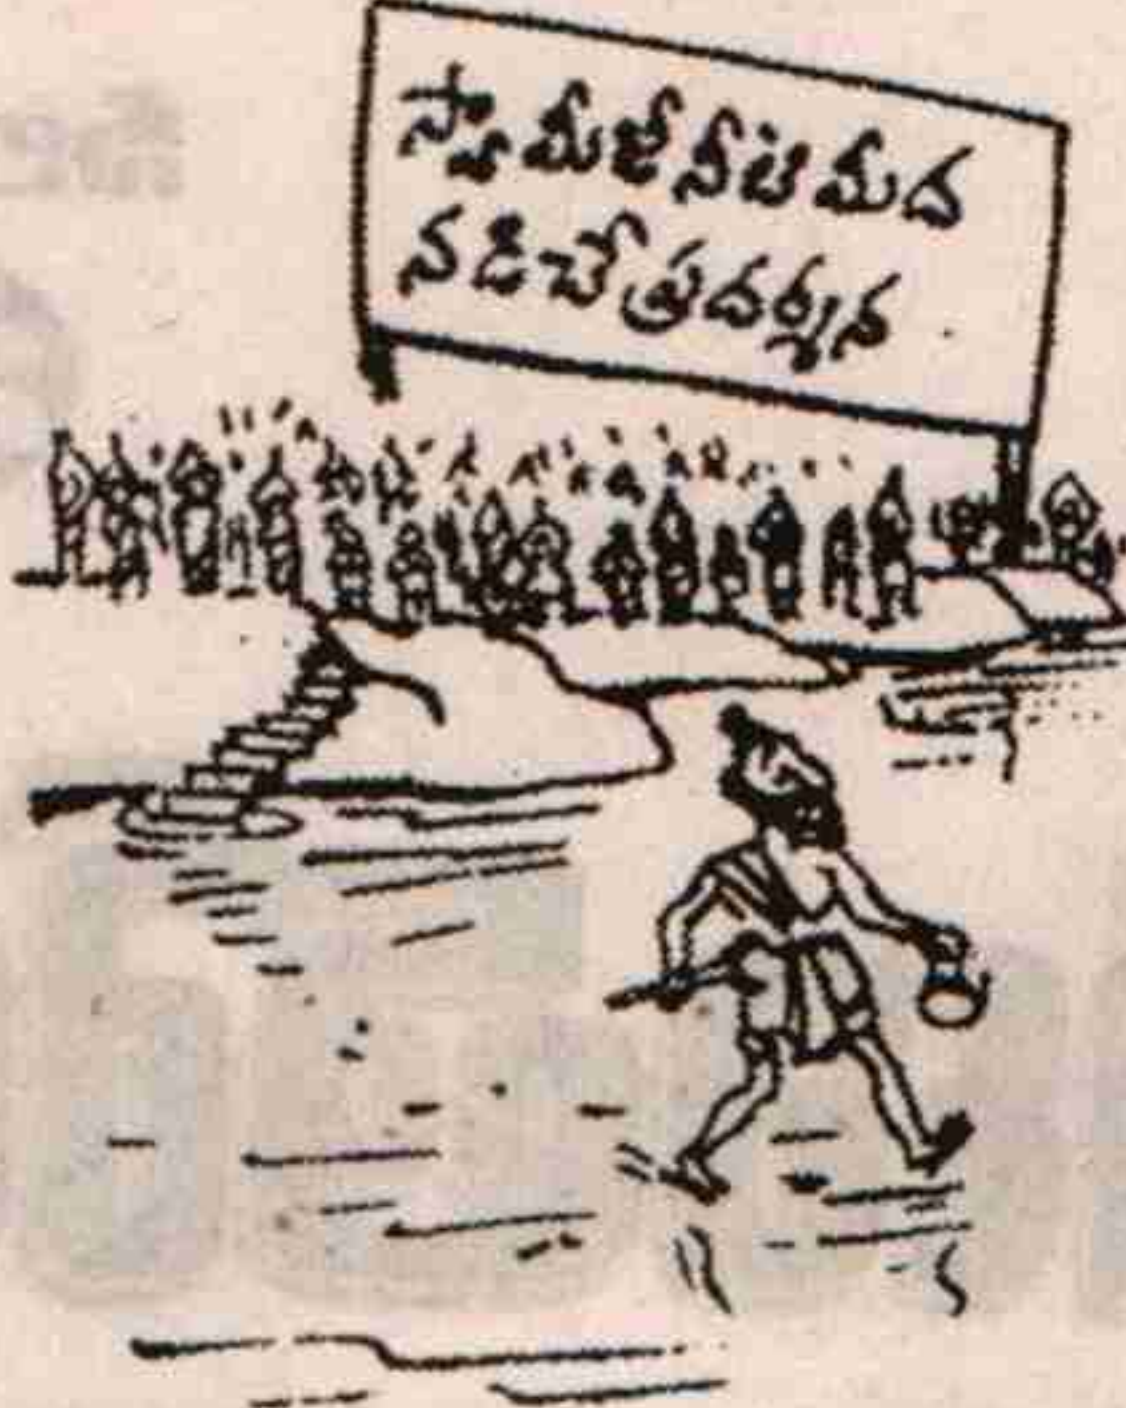 స్వామీజీ నీటి మీద
నడిచే ప్రదర్శన